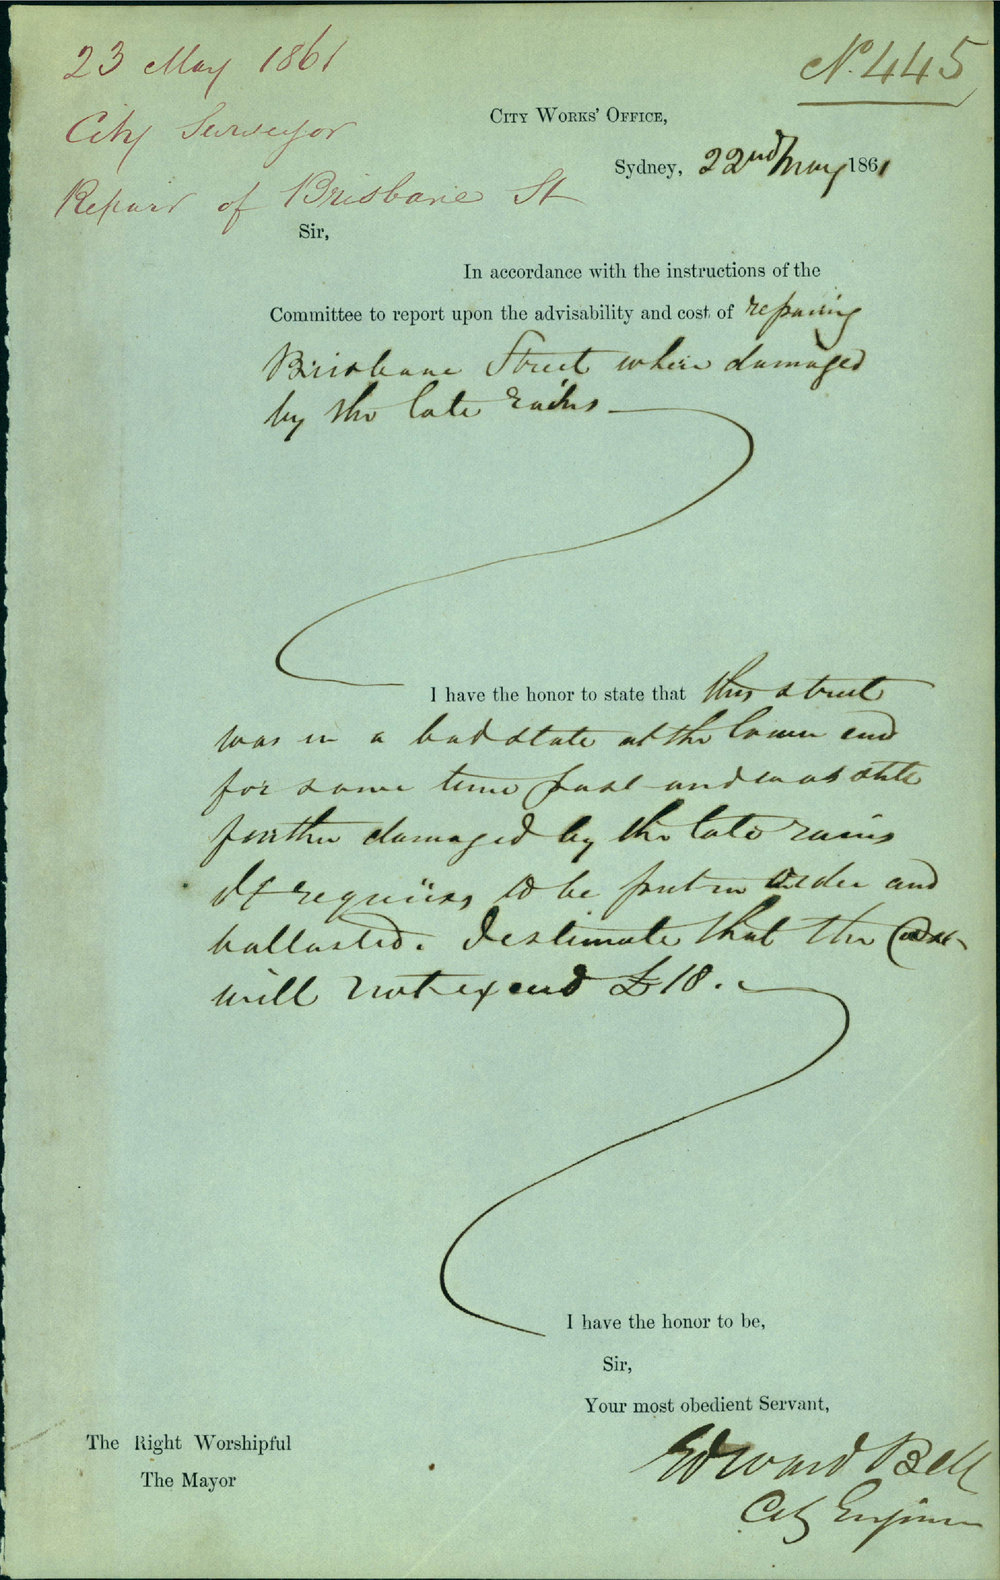 23 May 1861
City Surveyor
Repair of Brisbane St
No. 445
City Works' Office,
Sydney, 22nd May 1861
Sir,
In accordance with the instructions of the
Committee to report upon the advisability and cost of repairing
Brisbane Street where damaged
by the late rains
I have the honor to state that this street
was in a bad state at the lower end
for some time past and was still
further damaged by the late rains
It requires to be put in order and
ballasted. I estimate that the Cost
will not exceed £18.
I have the honor to be,
Sir,
Your most obedient Servant,
Edward Bell
City Engineer
The Right Worshipful
The Mayor